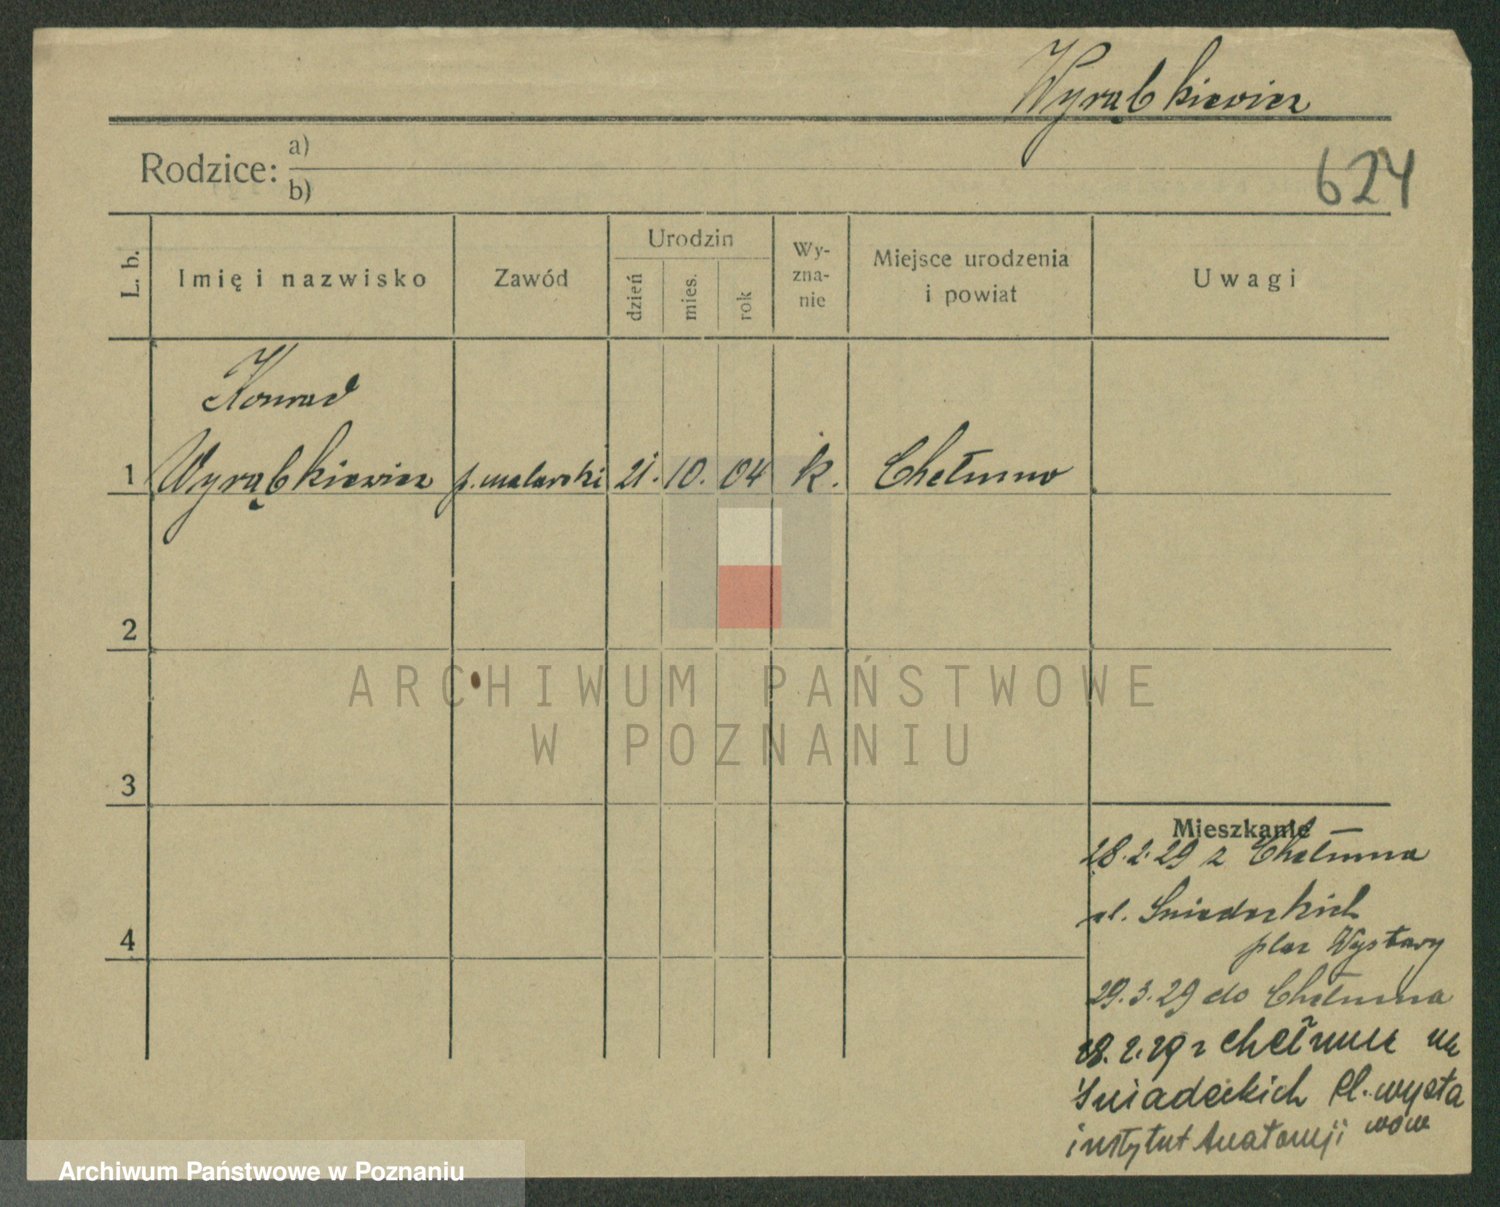 Wyrąbkiewicz
Rodzice: a)
b)
624
L. b.
Imię i nazwisko
Zawód
Urodzin
dzień
mies.
rok
Wy-
zna-
nie
Miejsce urodzenia
i powiat
Uwagi
Konrad
1 Wyrąbkiewicz p. malarski 21. 10. 04 k. Chełmno
2
ARCHIWUM PAŃSTWOWE
W POZNANIU
3
Mieszkanie
28.2.29 z Chełmna
ul. Sniadeckich
plac Wystawy
29.3.29 do Chełmna
28.2.29 z Chełmna na
4
Sniadeckich Pl. wysta
wow
instytut Anatomji
Archiwum Państwowe w Poznaniu